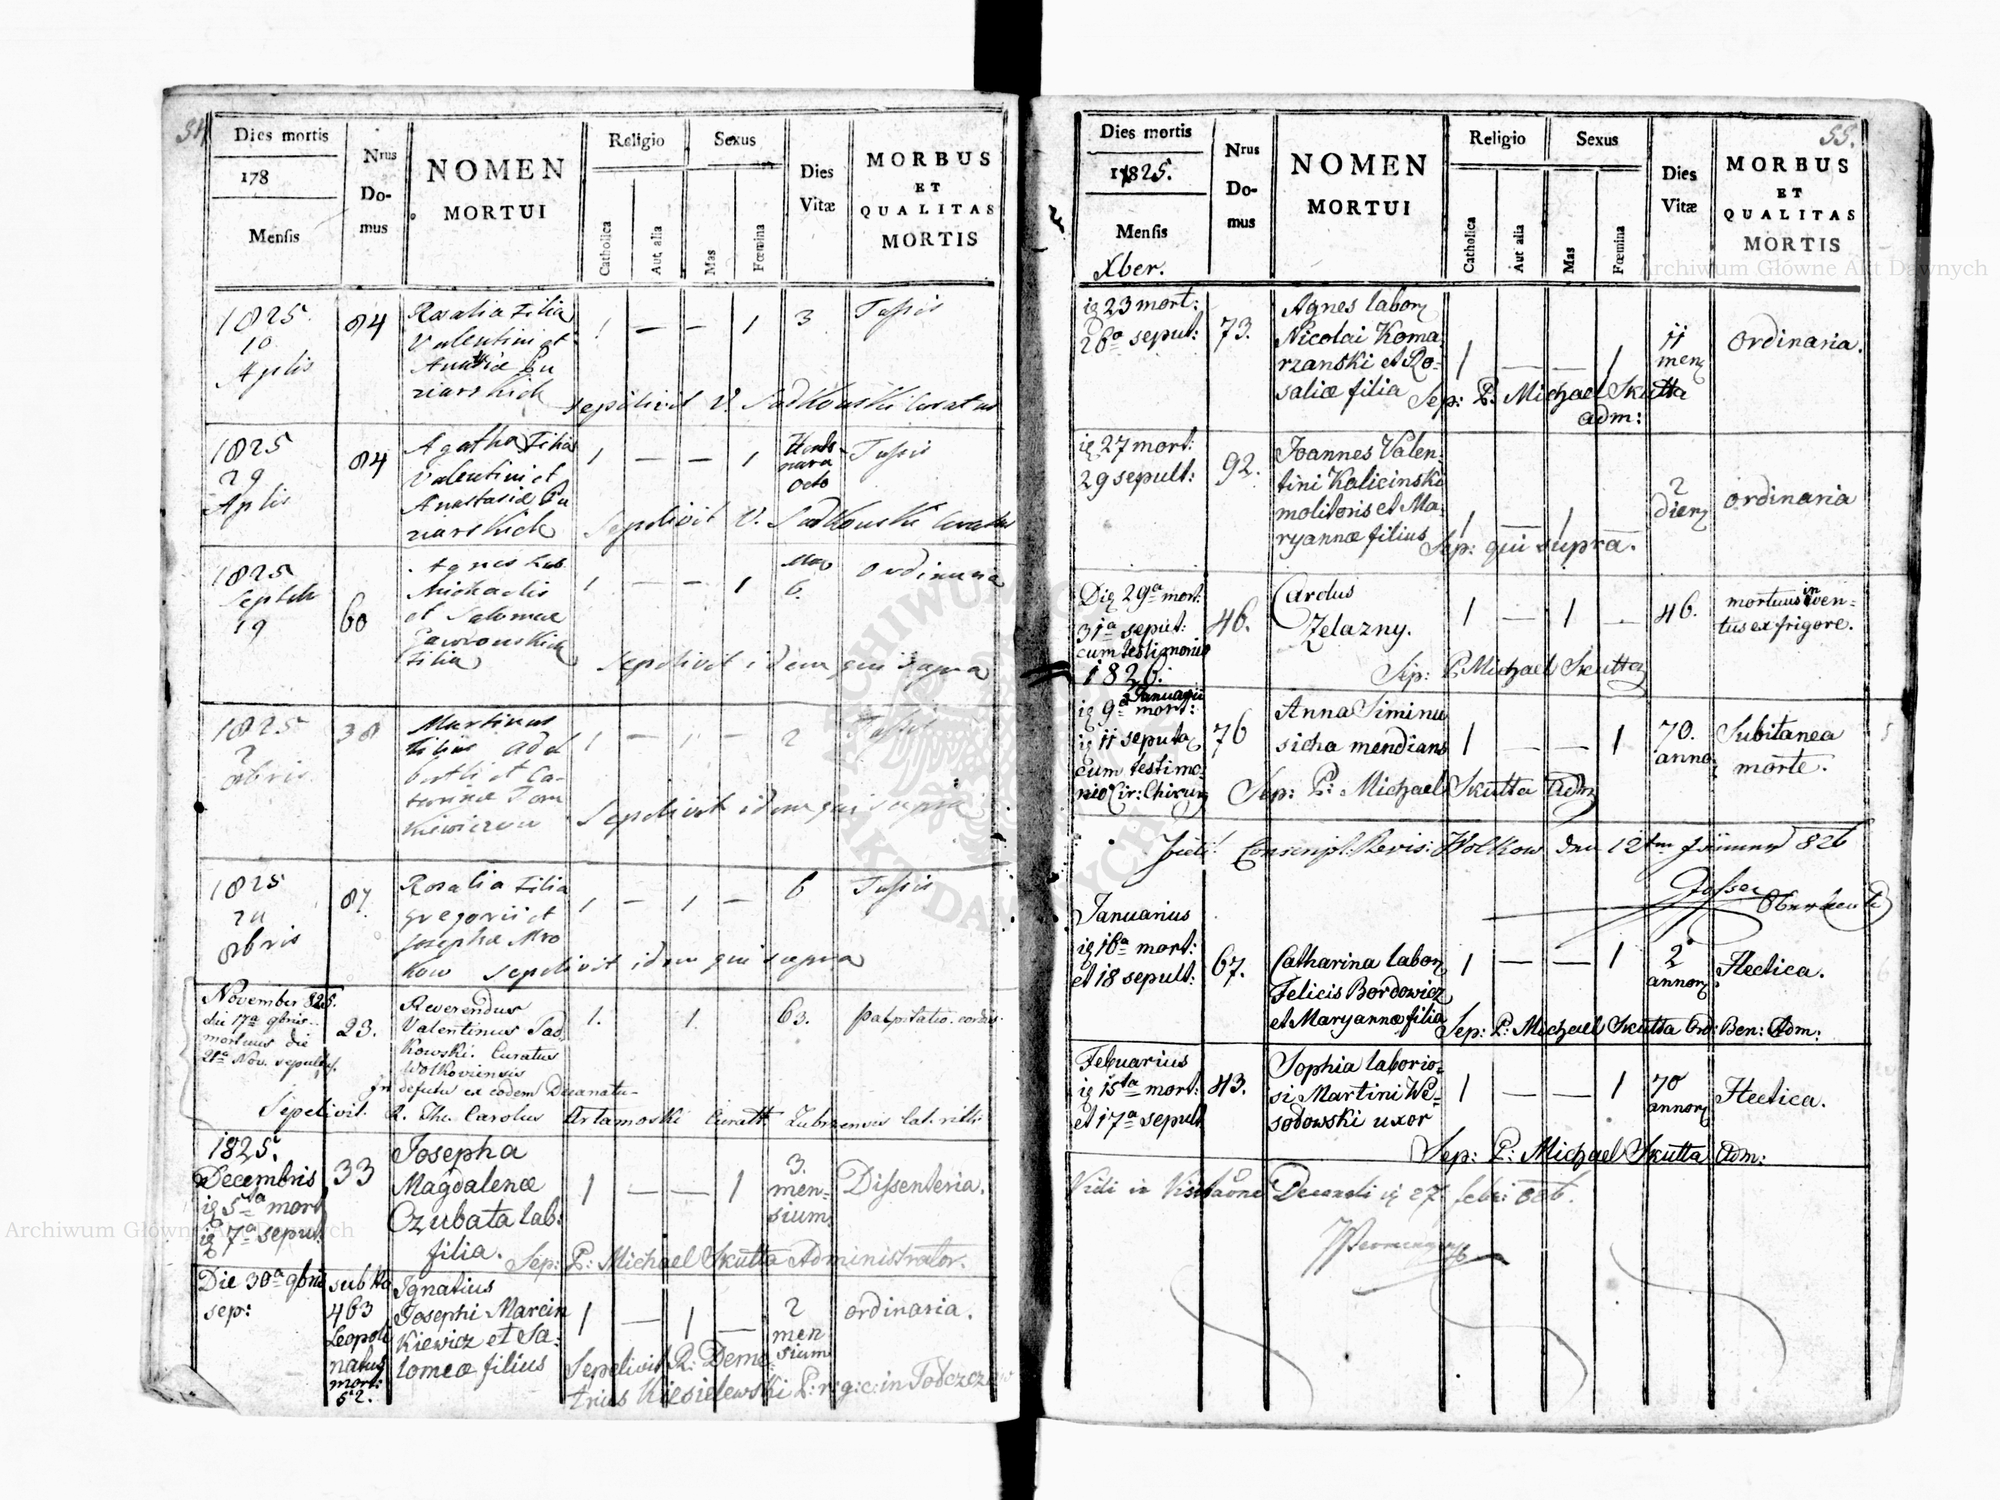 54
Dies mortis
178
Mensis
Nrus
Do-
mus
NOMEN
MORTUI
Religio
Catholica
Aut alia
Sexus
Mas
Fœmina
Dies
Vitæ
MORBUS
ET
QUALITAS
MORTIS
1825
10
Aplis
84
Rosalia Filia
Valentini et
ziarskich
1 — — 1
3
Tussis
sepelivit V. Sadkouski Curatus
1825
29
Aplis
84
Agatha Filia
Valentini et
Anastasiæ Bu
ziarskich
1 — — 1
octo
Tussis
Sepelivit V. Sadkouski Curatus
1825
Septeb
19
60
Agnes
Michaelis
et Salomeæ
Pawrouskich
Filia
1 — — 1
6.
ordinaria
Sepelivit idem qui supra
1825
2
38
Martinus
filius Adal
berthi et Ca-
tarinæ Tom
kiewiczow
1 — 1 —
2
Tussis
Sepelivit idem qui supra
1825
87.
Rosalia Filia
Gregorii et
Josephæ Mro
kow sepelivit idem qui supra
1 — 1 —
6
Tussis
November 825.
die 17a 9bris
mortuus die
21a Nov. sepultus.
23.
Reverendus
Valentinus Sad
kowski. Curatus
Wolkoviensis
1. 1.
63.
palpitatio cordis
defectu ex eodem Decanatu
Sepelivit. R. Th. Carolus Artamoski Curatt Zubrzensis lat. rit:
1825.
Decembris
ię 5ta mort
ię 7a sepult
33
Josepha
Magdalenæ
Czubata lab:
filia.
1 — — 1
3.
men-
sium.
Dissenteria.
Sep: P: Michael Skutta Administrator.
Die 30a 9bris
sep:
sub No
463
Leopoli
natus
mort:
52.
Ignatius
Josephi Marcin
kiewicz et Sa-
lomeæ filius
1 — 1 —
2
men
sium
ordinaria.
Sepelivit R: Deme-
trius Kiesielewski P: r: g: c: in
55.
Dies mortis
1825.
Mensis
Xber.
Nrus
Do-
mus
NOMEN
MORTUI
Religio
Catholica
Aut alia
Sexus
Mas
Fœmina
Dies
Vitæ
MORBUS
ET
QUALITAS
MORTIS
ię 23 mort:
26a sepult:
73.
Agnes labor
Nicolai Koma
rzanski et Ro-
saliæ filia
1 — — 1
11
men
ordinaria.
Sep: P: Michael Skutta
adm:
ię 27 mort:
29 sepult:
92.
Joannes Valen-
tini Kalicinski
molitoris et Ma-
ryannæ filius
1 — 1 —
2
dier
ordinaria
Sep: qui supra.
Die 29a mort:
31a sepult:
cum testimonio
46.
Carolus
Zelazny.
1 — 1 —
46.
mortuus in ven-
tus ex frigore.
Sep: P. Michael Skutta
1826.
Januarii
ię 9a mort:
ię 11 sepulta
cum testimo
nio Cir: Chirurg
76
Anna Siminu
sicha mendicans
1 — — 1
70.
anno
Subitanea
morte.
Sep: P: Michael Skutta Adm
Wolkow den 12ten Jänner 826
Januarius
ię 16a mort:
et 18 sepult:
67.
Catharina labor
Felicis Bordowicz
et Maryannæ filia
1 — — 1
2
annor
Hectica.
Sep: P: Michael Skutta Ord: Ben: Adm:
Febuarius
ię 15ta mort.
et 17a sepult
43.
Sophia laborio-
si Martini We-
sodowski uxor
1 — — 1
70
annor
Hectica.
Sep: P: Michael Skutta Adm:
Vidi in Visitaone Decanali ię 27 febr: 826.
Archiwum Główne Akt Dawnych
Archiwum Główne Akt Dawnych
ARCHIWUM GŁÓWNE AKT DAWNYCH